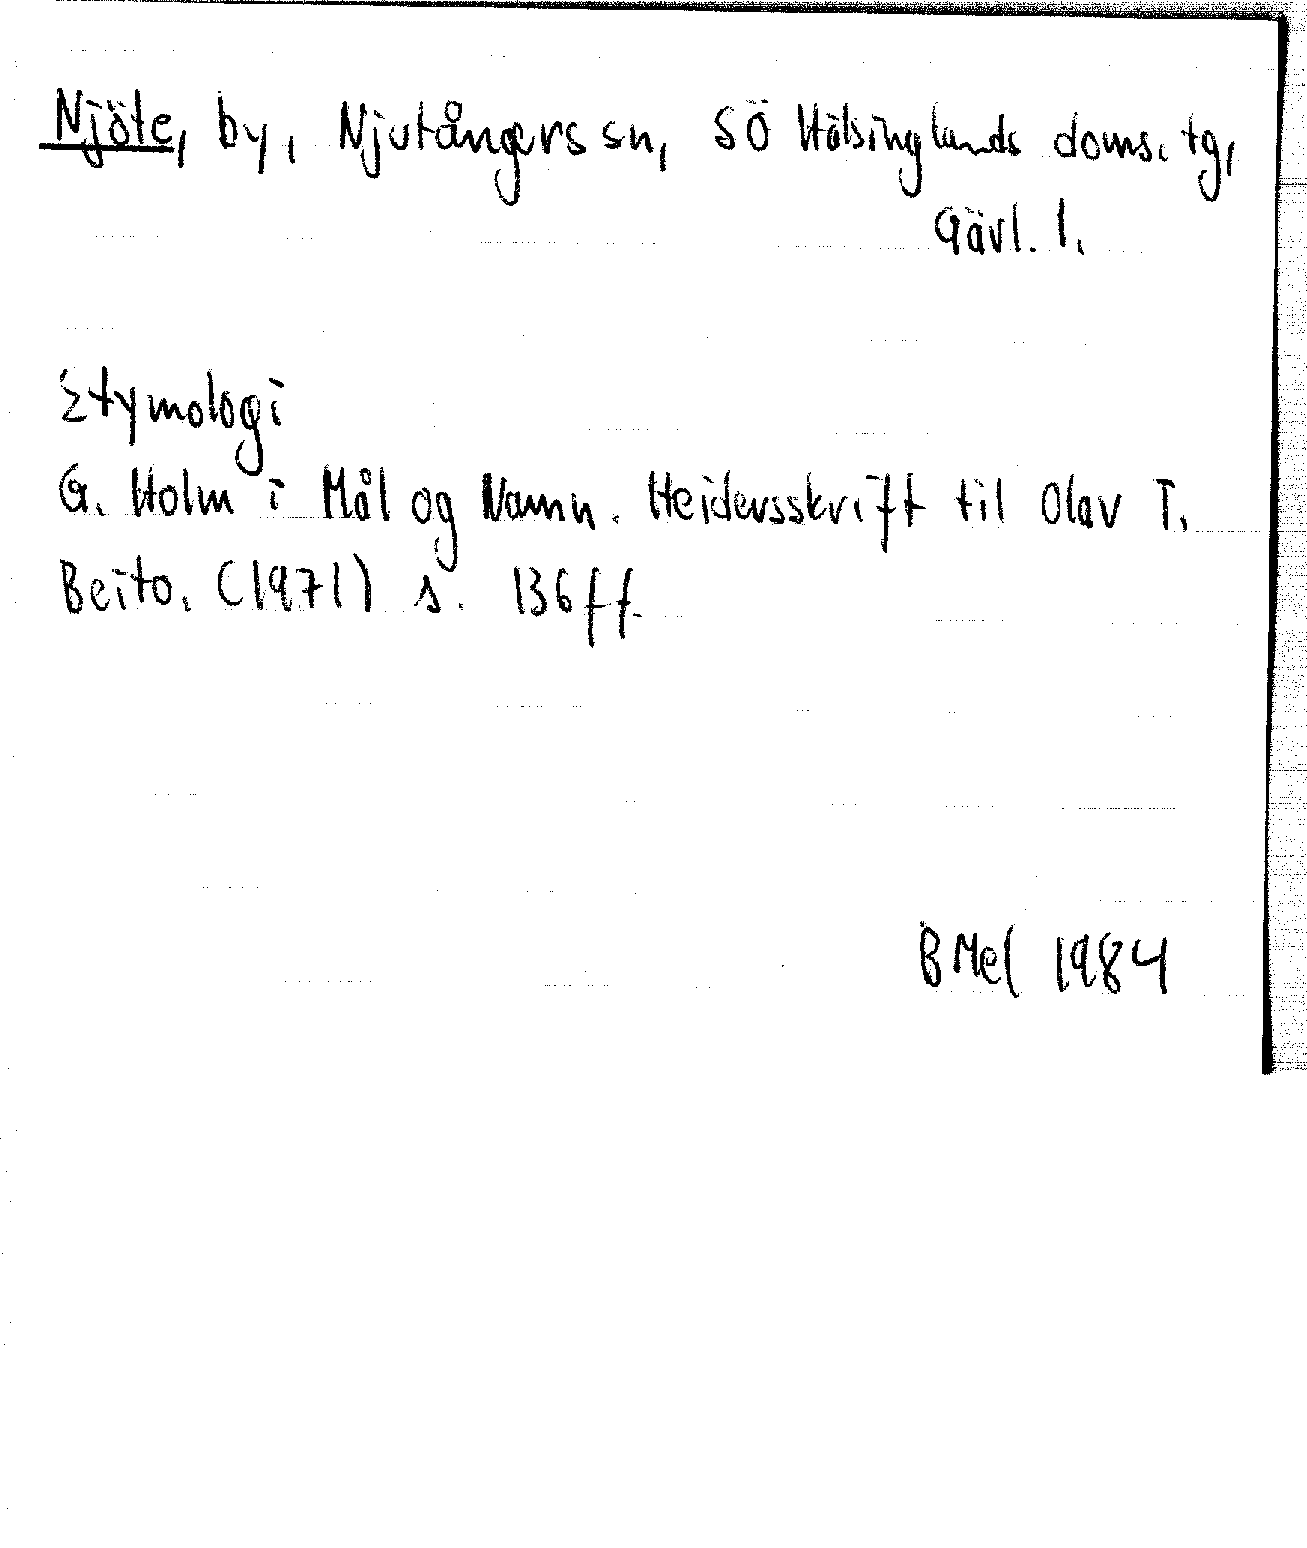 Njöte, by, Njutångers sn, SÖ Hälsinglands doms. tg,
Gävl. l.
Etymologi
G. Holm i Mål og Namn. Heidersskrift til Olav T.
Beito. (1971) s. 136ff.
B Mel 1984